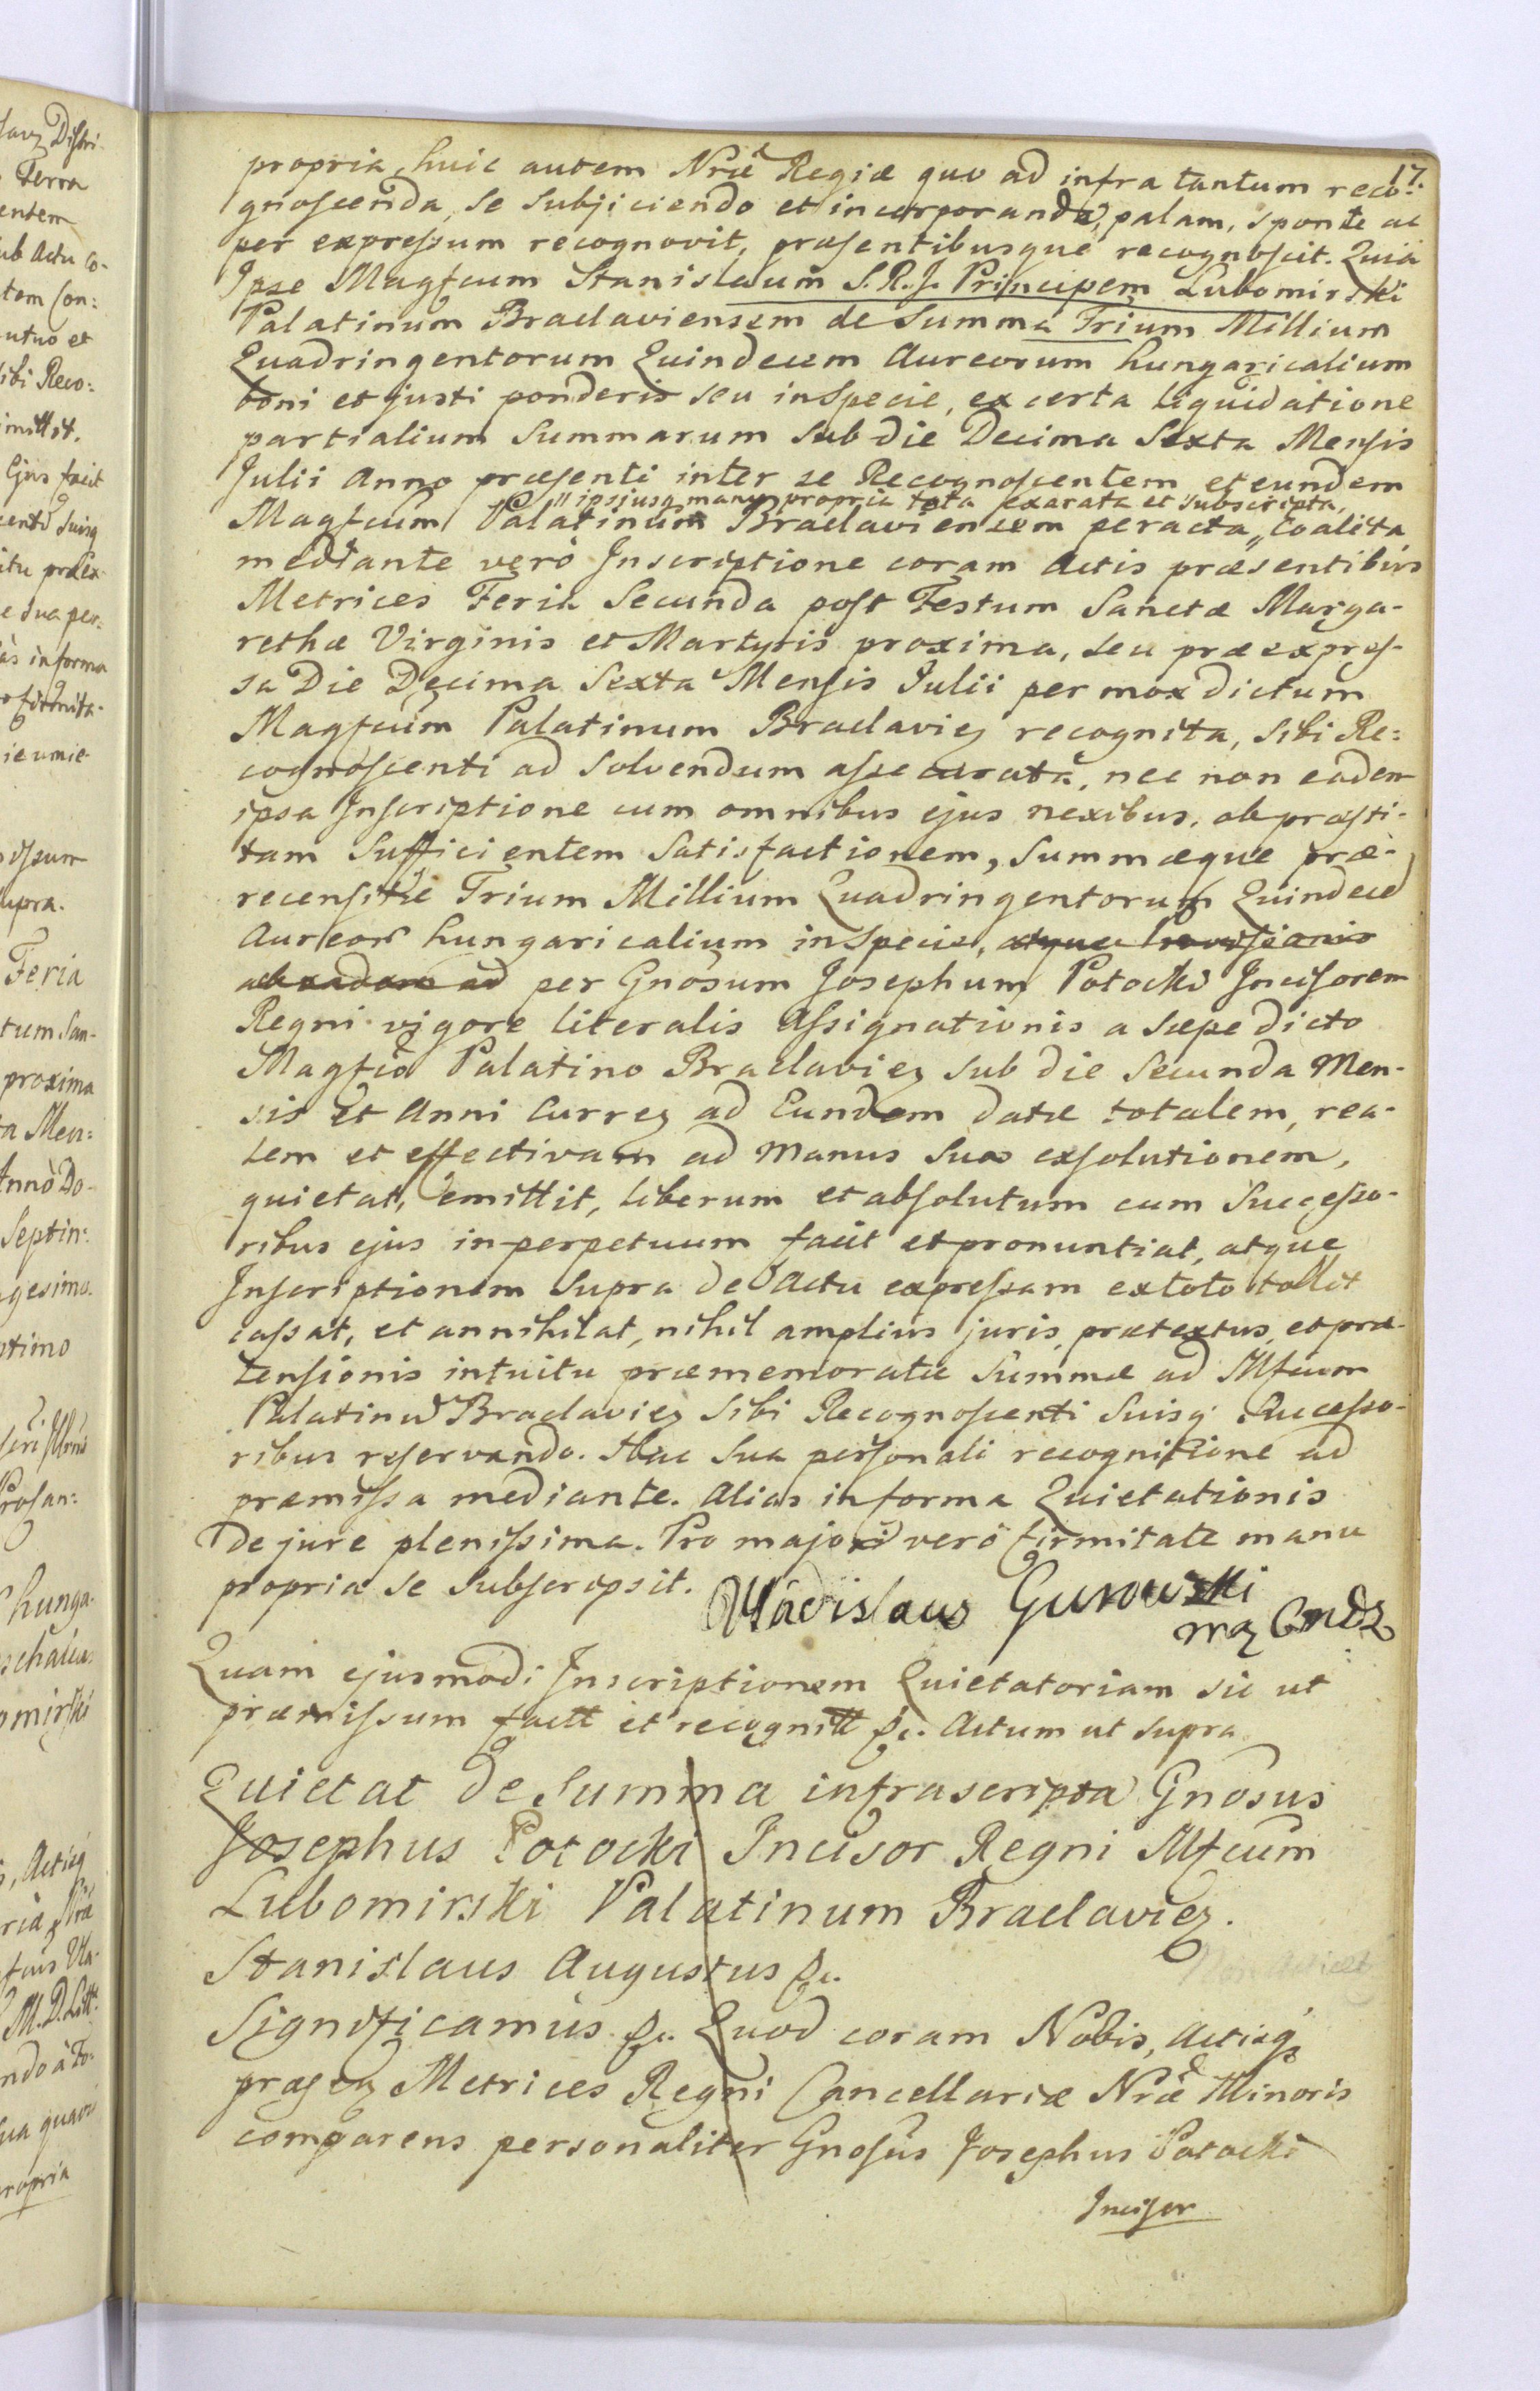 17.
propria, huic autem Nræ Regiæ quo ad infra tantum reco-
gnoscenda, se subjiciendo et incorporando, palam, sponte ac
per expressum recognovit, præsentibusque recognoscit. Quia
Ipse Magfcum Stanislaum S.R.J. Principem Lubomirski
Palatinum Braclaviensem de Summa Trium Millium
Quadringentorum Quindecem Aureorum hungaricalium
boni et justi ponderis seu in Specie, ex certa liquidatione
partialium Summarum sub die Decima Sexta Mensis
Julii Anno præsenti inter se Recognoscentem et eundem
"ipsjusq manu propria tota exarata et subscripta,
Magfcum Palatinum Braclaviensem peracta " Coalita
mediante verò Inscriptione coram Actis præsentibus
Metrices Feria Secunda post Festum Sanctæ Marga-
rethæ Virginis et Martyris proxima, seu præexpres-
sa Die Decima Sexta Mensis Julii per mox dictum
Magfcum Palatinum Braclavieq recognita, sibi Re:
cognoscenti ad solvendum assecurata, nec non eadem
ipsa Inscriptione cum omnibus ejus nexibus, ob præsti-
tam Sufficientem Satisfactionem, Summæque præ-
recensitæ Trium Millium Quadringentorum Quindece
Aureor hungaricalium in Specie, atque
ad per Gnosum Josephum Potocki Incisorem
Regni vigore literalis Assignationis a sæpe dicto
Magfco Palatino Braclavieq sub die Secunda Men-
sis Et Anni Curreq ad Eundem datæ totalem, rea-
lem et effectivam ad manus suas exsolutionem,
quietat, emittit, liberum et absolutum cum Successo-
ribus ejus in perpetuum facit et pronuntiat, atque
Inscriptionem Supra de Actu expressam ex toto tollit
cassat, et annihilat, nihil amplius juris, prætextus, et præ-
tensionis intuitu præmemoratæ Summæ ad Mfcum
Palatinu Braclavieq sibi Recognoscenti Suisq Successo-
ribus reservando. Hac sua personali recognitione ad
præmissa mediante. Alias in forma Quietationis
De jure plenissima. Pro majori verò firmitate manu
propria se Subscripsit.
Wladislaus Gurowski
Quam ejusmodi Inscriptionem Quietatoriam sic ut
præmissum factt et recognitt &c. Actum ut supra
Quietat de Summa infrascripta Gnosus
Josephus Potocki Incisor Regni Mfcum
Lubomirski Palatinum Braclavieq.
Stanislaus Augustus &c.
Significamus &c. Quod coram Nobis, Actisq
præseq Metrices Regni Cancellariæ Nræ Minoris
comparens personaliter Gnosus Josephus Potocki
Incisor